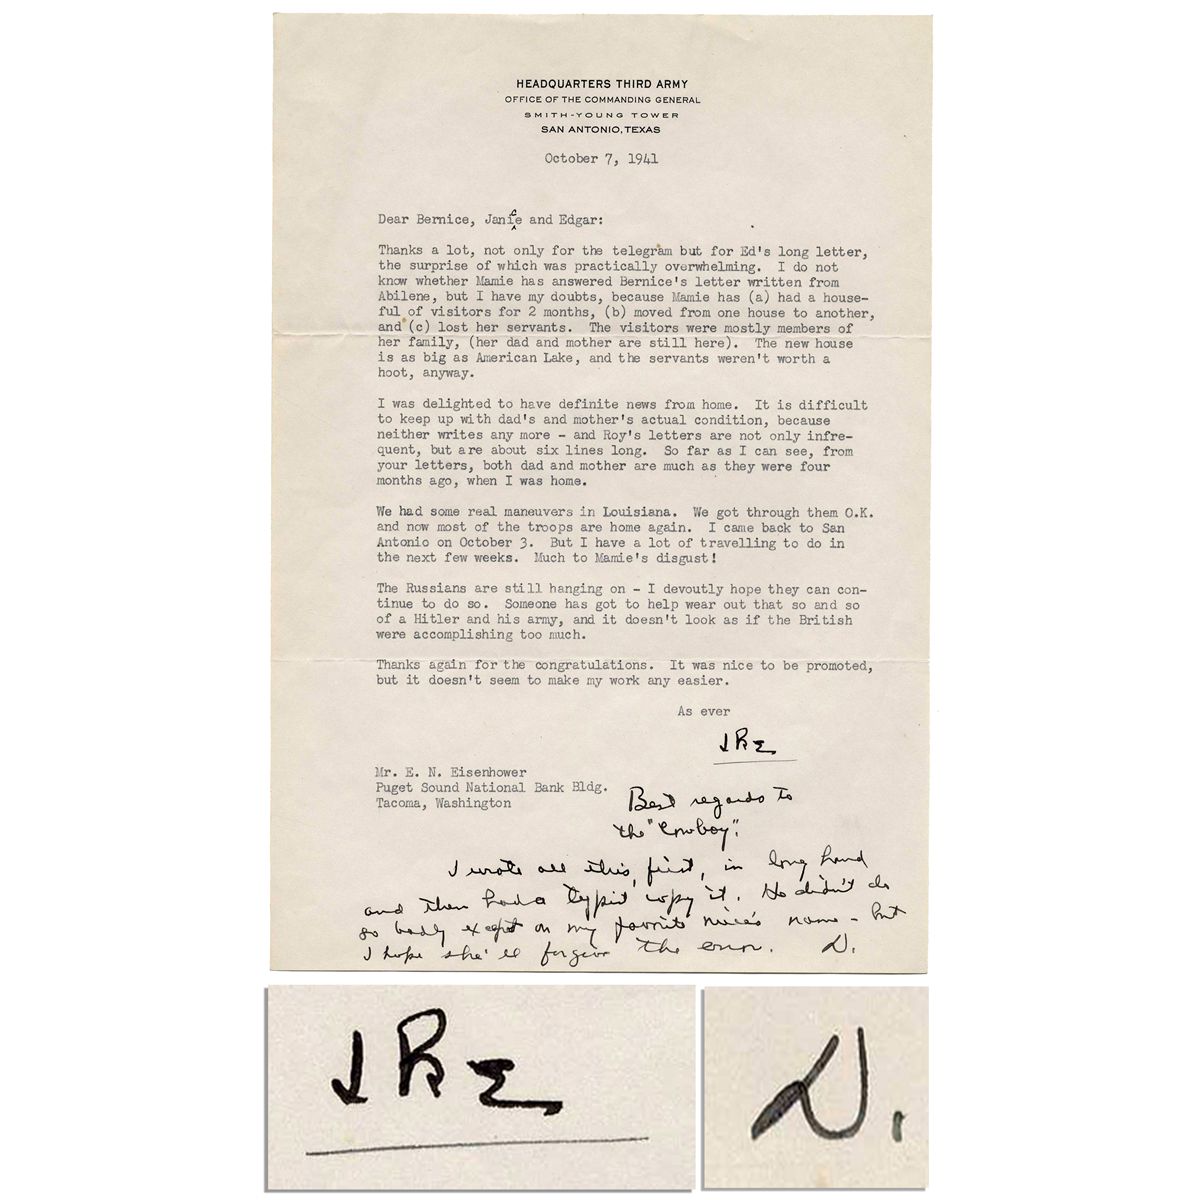 HEADQUARTERS THIRD ARMY
OFFICE OF THE COMMANDING GENERAL
SMITH-YOUNG TOWER
SAN ANTONIO, TEXAS
October 7, 1941
Dear Bernice, Janice and Edgar:
Thanks a lot, not only for the telegram but for Ed's long letter,
the surprise of which was practically overwhelming. I do not
know whether Mamie has answered Bernice's letter written from
Abilene, but I have my doubts, because Mamie has (a) had a house-
ful of visitors for 2 months, (b) moved from one house to another,
and (c) lost her servants. The visitors were mostly members of
her family, (her dad and mother are still here). The new house
is as big as American Lake, and the servants weren't worth a
hoot, anyway.
I was delighted to have definite news from home. It is difficult
to keep up with dad's and mother's actual condition, because
neither writes any more - and Roy's letters are not only infre-
quent, but are about six lines long. So far as I can see, from
your letters, both dad and mother are much as they were four
months ago, when I was home.
We had some real maneuvers in Louisiana. We got through them O.K.
and now most of the troops are home again. I came back to San
Antonio on October 3. But I have a lot of travelling to do in
the next few weeks. Much to Mamie's disgust!
The Russians are still hanging on - I devoutly hope they can con-
tinue to do so. Someone has got to help wear out that so and so
of a Hitler and his army, and it doesn't look as if the British
were accomplishing too much.
Thanks again for the congratulations. It was nice to be promoted,
but it doesn't seem to make my work any easier.
As ever
IKE
Mr. E. N. Eisenhower
Puget Sound National Bank Bldg.
Tacoma, Washington
Best regards to
the "Cowboy".
I wrote all this, first, in long hand
and then had a typist copy it. He didn't do
so badly except on my favorite niece's name - but
I hope she'll forgive the error. D.
IKE
D.